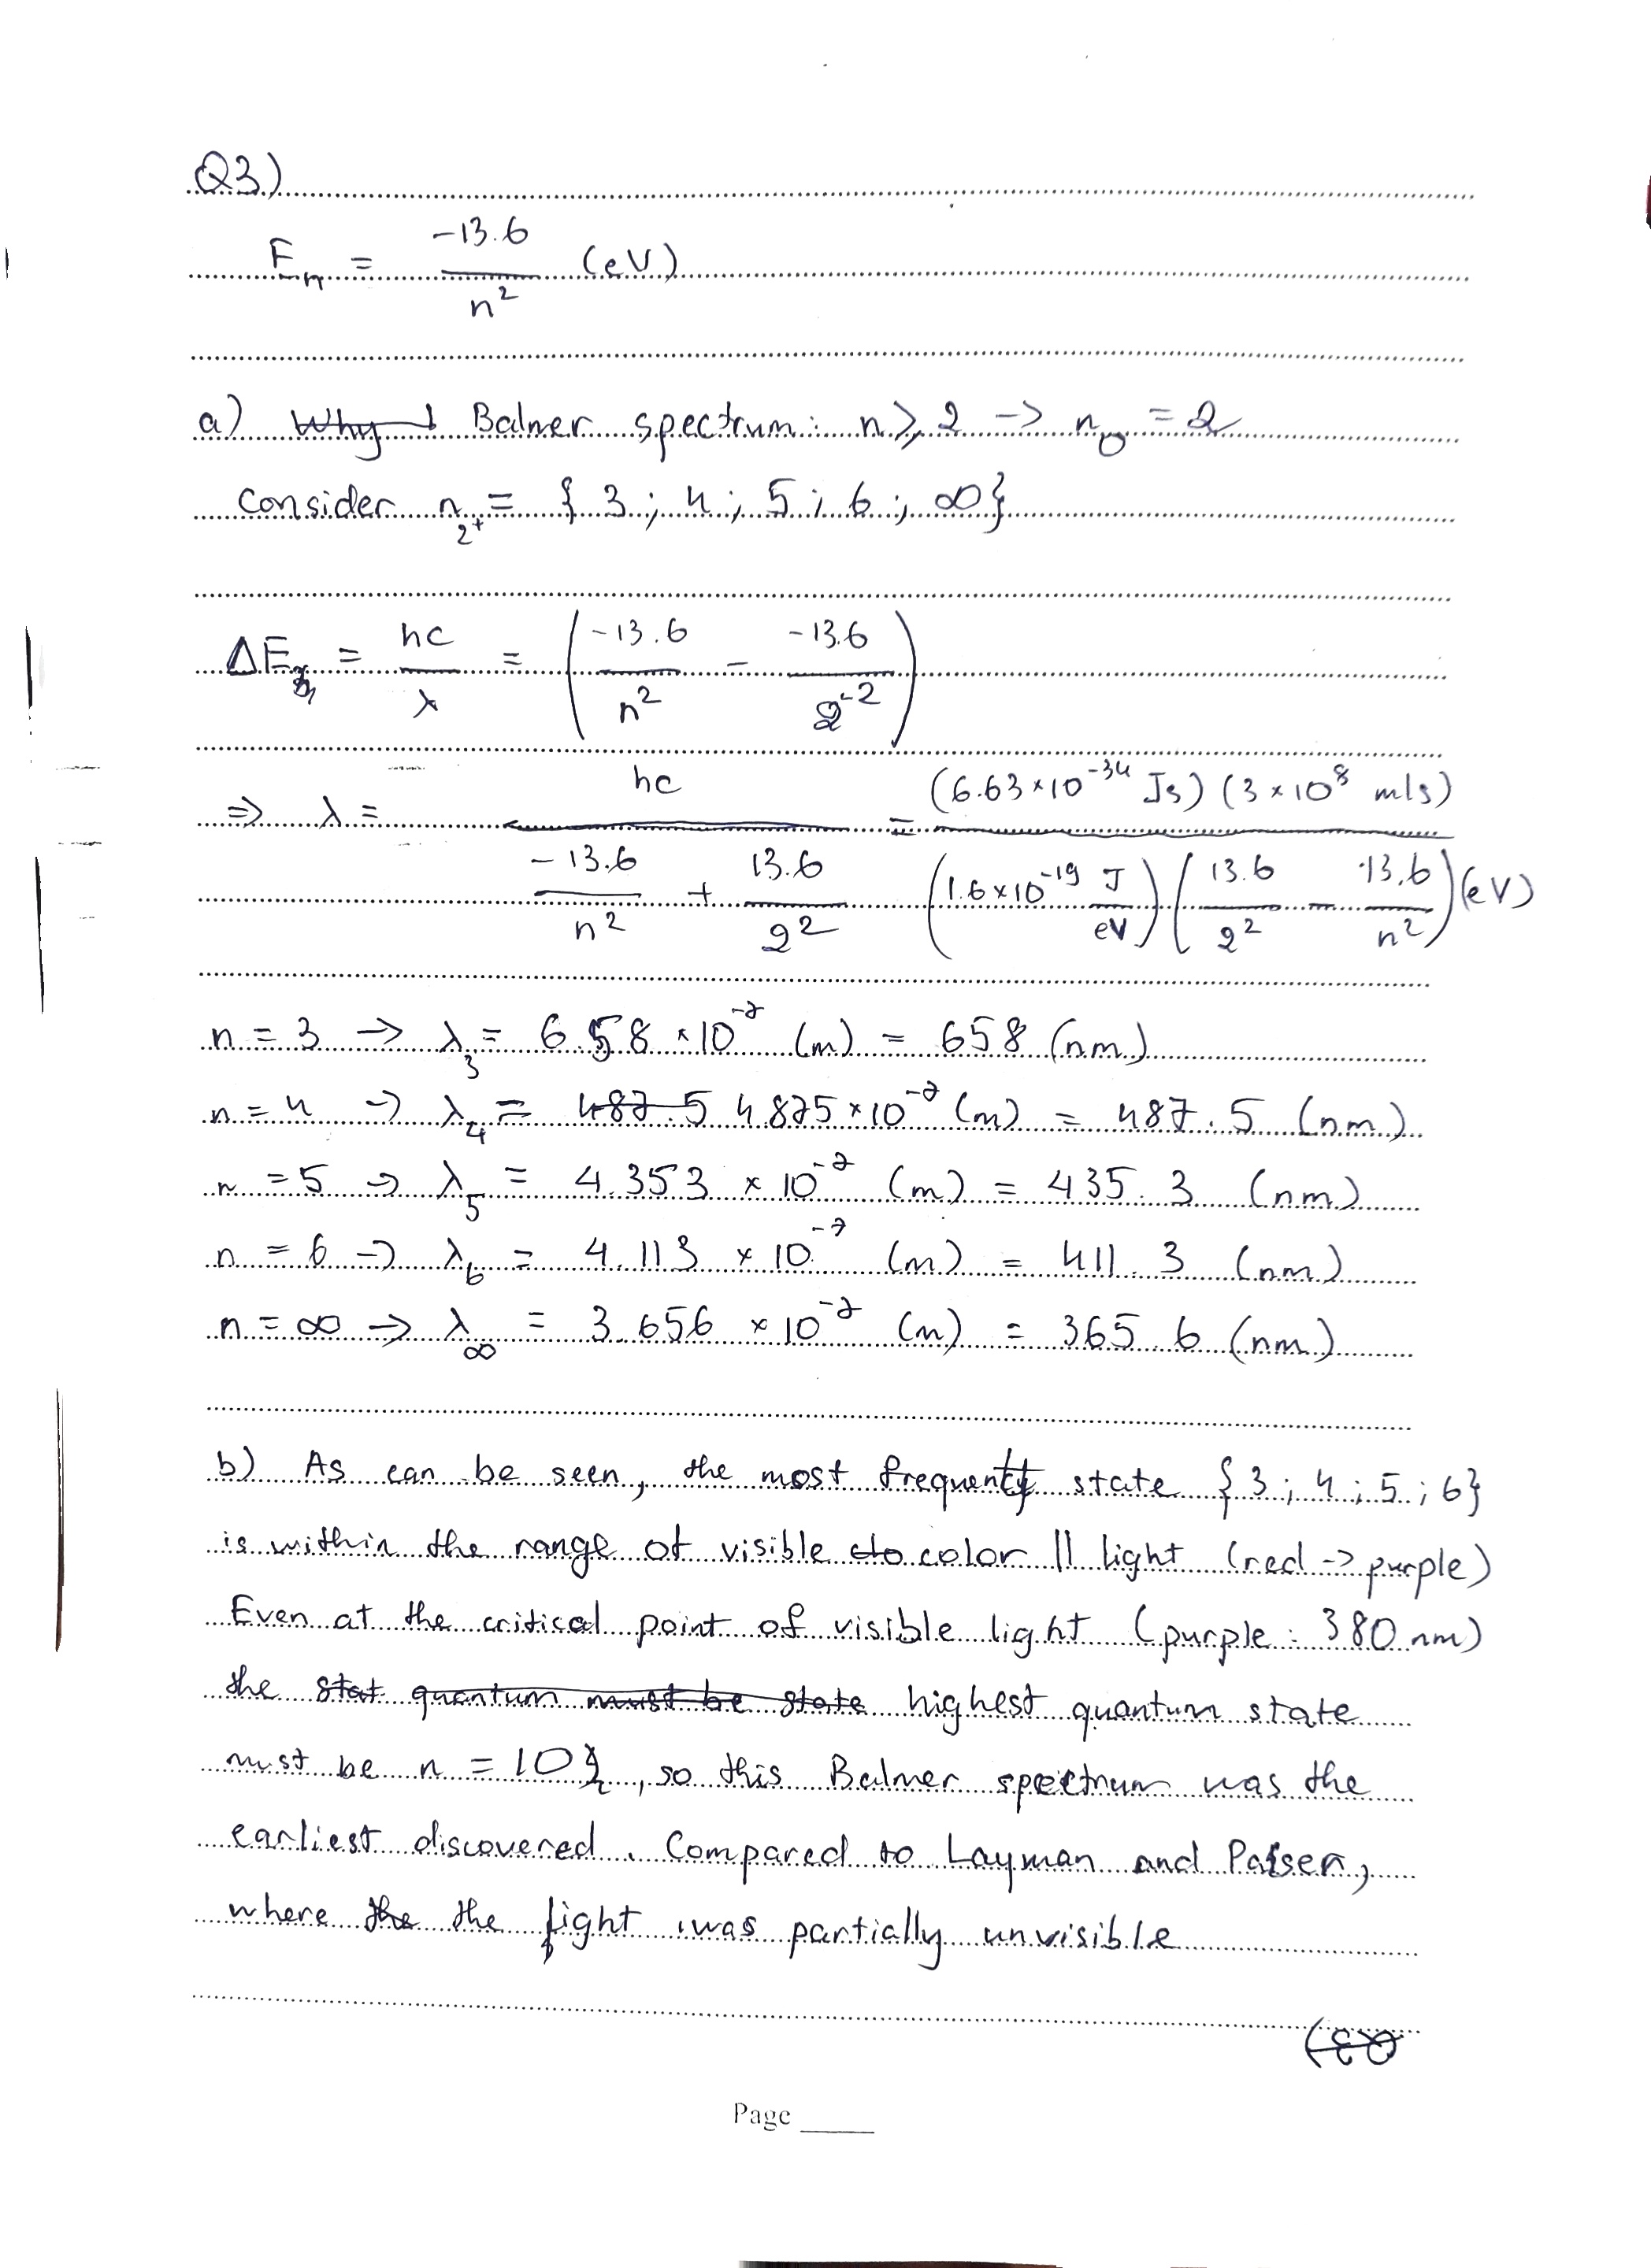 Q3)
Eₙ = -13.6 / n² (eV)
a) Why Balmer spectrum: n ⩾ 2 -> n₀ = 2
Consider n₂₊ = { 3 ; 4 ; 5 ; 6 ; ∞}
ΔE = hc / λ = ( -13.6 / n² - -13.6 / 2² )
=> λ = hc / ( -13.6 / n² + 13.6 / 2² ) = (6.63 × 10⁻³⁴ Js) (3 × 10⁸ m/s) / (1.6 × 10⁻¹⁹ J / eV) ( 13.6 / 2² - 13.6 / n² ) (eV)
n = 3 -> λ₃ = 6.58 × 10⁻⁷ (m) = 658 (nm)
n = 4 -> λ₄ = 487.5 4.875 × 10⁻⁷ (m) = 487.5 (nm)
n = 5 -> λ₅ = 4.353 × 10⁻⁷ (m) = 435.3 (nm)
n = 6 -> λ₆ = 4.113 × 10⁻⁷ (m) = 411.3 (nm)
n = ∞ -> λ∞ = 3.656 × 10⁻⁷ (m) = 365.6 (nm)
b) As can be seen, the most frequent state { 3 ; 4 ; 5 ; 6}
is within the range of visible color || light (red -> purple)
Even at the critical point of visible light (purple : 380 nm)
the stat quantum must be state highest quantum state
must be n = 10, so this Balmer spectrum was the
earliest discovered. Compared to Layman and Paisen,
where the the light was partially unvisible
Q3)
Page ____